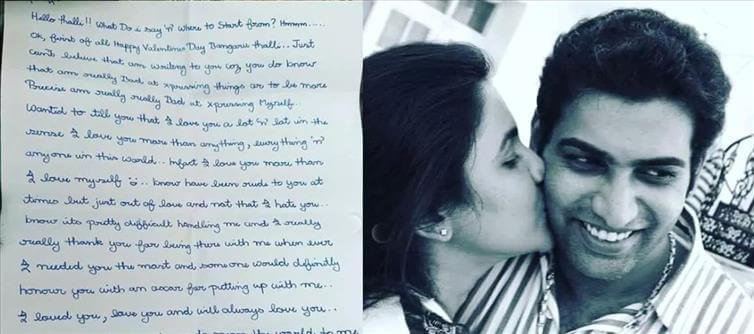 Hello thalli!! What Do i say 'n' where to Start from? Hmmm.....
Ok, first of all Happy Valentines Day Bangaru thalli... Just
can't believe that am writing to you coz you do know
that am really Bad at xpressing things or to be more
Precise am really really Bad at xpressing Myself..
Wanted to tell you that I love you a lot 'n' lot in the
sense I love you more than anything, everything 'n'
anyone in this world.. Infact I love you more than
I love myself :).. know have been rude to you at
times but just out of love and not that I hate you..
know its pretty difficult handling me and I really
really thank you for being there with me when ever
I needed you the most and some one would defindly
honour you with an oscar for putting up with me..
I loved you, love you and will always love you..
the world to me